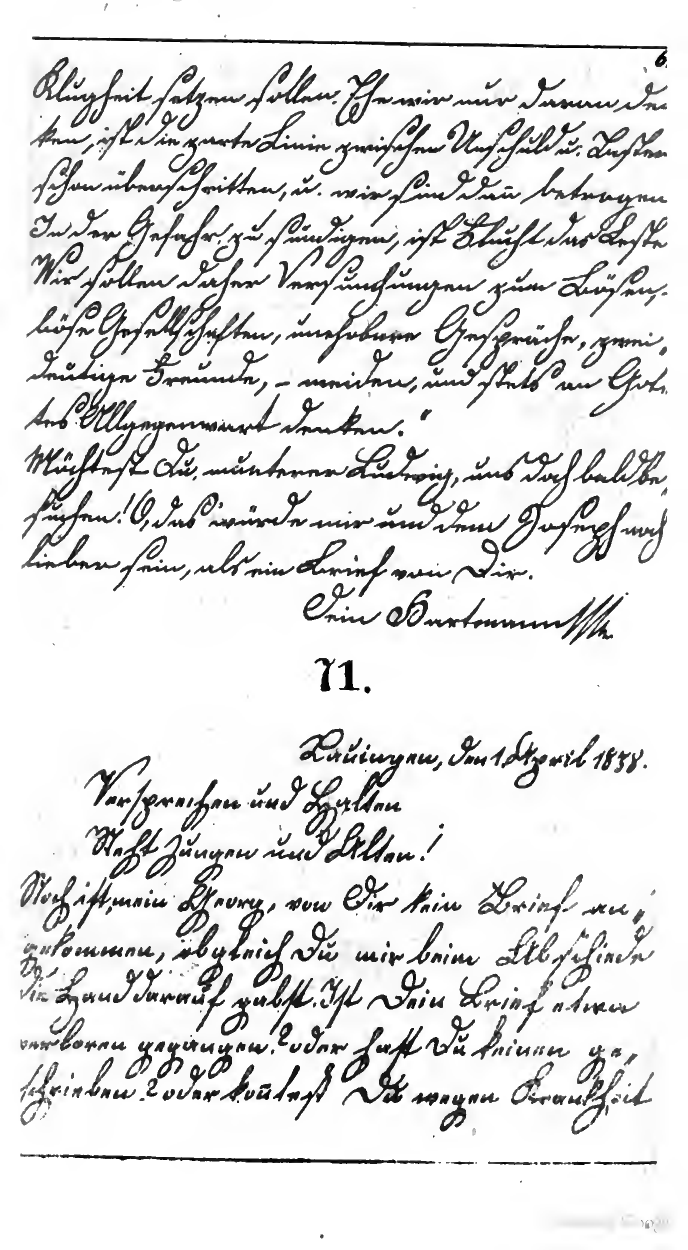 6
Klugheit setzen sollen. Ehe wir nur daran den
ken, ist die zarte Linie zwischen Unschuld u. Laster
schon überschritten, u. wir sind dañ betrogen
In der Gefahr, zu sündigen, ist Flucht das Beste
Wir sollen daher Versuchungen zum Bösen, –
böse Gesellschaften, unehrbare Gespräche, zwei„
deutige Freunde, – meiden, und stets an Got„
tes Allgegenwart denken."
Möchtest Du, munterer Ludwig, uns doch bald be„
suchen! O, das würde mir und dem Joseph noch
lieber sein, als ein Brief von Dir.
Dein Hartmann
71.
Lauingen, den 1. April 1838.
Versprechen und Halten
Steht Jungen und Alten!
Noch ist, mein Georg, von Dir kein Brief an„
gekommen, obgleich Du mir beim Abschiede
die Hand darauf gabst. Ist Dein Brief etwa
verloren gegangen? oder hast Du keinen ge„
schrieben? oder koñtest Du wegen Krankheit